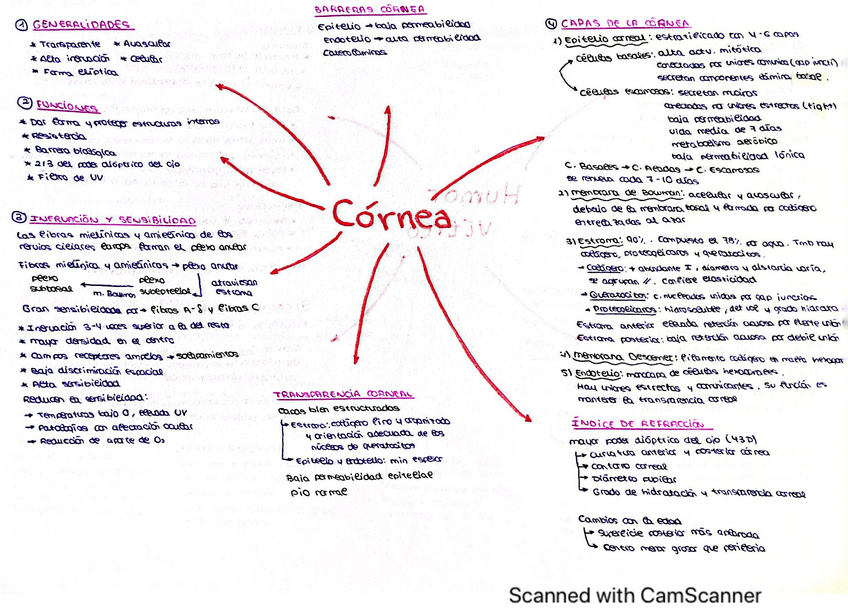 ① GENERALIDADES
* Transparente * Avascular
* Alta inervación * Celular
* Forma elíptica
② FUNCIONES
* Dar forma y proteger estructuras internas
* Resistencia
* Barrera biológica
* 2/3 del poder dióptrico del ojo
* Filtro de UV
③ INERVACIÓN Y SENSIBILIDAD
Las fibras mielínicas y amielínicas de los
nervios ciliares largos forman el plexo anular
Fibras mielínica y amielínicas → plexo anular
plexo subbasal ← m. Bowman plexo subepitelial atraviesan estroma
Gran sensibilidad por → fibras A-δ y fibras C
* Inervación 3-4 veces superior a la del resto
* Mayor densidad en el centro
* Campos receptores amplios → solapamientos
* Baja discriminación espacial
* Alta sensibilidad
Reducen la sensibilidad:
→ Temperaturas bajo 0, elevada UV
→ Patologías con afectación ocular
→ Reducción de aporte de O₂
BARRERAS CÓRNEA
Epitelio → baja permeabilidad
Endotelio → alta permeabilidad
Córnea
TRANSPARENCIA CORNEAL
Capas bien estructuradas
Estroma: colágeno fino y organizado
y orientación adecuada de los
núcleos de queratocitos
Epitelio y endotelio: min espesor
Baja permeabilidad epitelial
PIO normal
④ CAPAS DE LA CÓRNEA
1) Epitelio corneal: estratificado con 4-6 capas
Células basales: alta activ. mitótica
conectadas por uniones comunic (gap junct)
secretan componentes lámina basal.
Células escamosas: secretan mucinas
conectadas por uniones estrechas (tight)
baja permeabilidad
vida media de 7 días
metabolismo aeróbico
baja permeabilidad iónica
C. Basales → C. Aladas → C. Escamosas
se renueva cada 7-10 días
2) Membrana de Bowman: acelular y avascular,
debajo de la membrana basal y formada por colágeno
entrelazadas al azar
3) Estroma: 90%. Compuesta el 78% por agua. Tmb hay
colágeno, proteoglicanos y queratocitos.
→ Colágeno: + abundante I, diámetro y distancia varía,
se agrupan //. Confiere elasticidad
→ Queratocitos: c. nucleadas unidas por gap junctions
→ Proteoglicanos: hidrosoluble, det vol y grado hidrata
Estroma anterior: elevada retención acuosa por fuerte unión
Estroma posterior: baja retención acuosa por débil unión
4) Membrana Descemet: filamento colágeno en malla hexagon
5) Endotelio: monocapa de células hexagonales.
Hay uniones estrechas y comunicantes. Su función es
mantener la transparencia corneal
ÍNDICE DE REFRACCIÓN
Mayor poder dióptrico del ojo (43D)
→ Curvatura anterior y posterior córnea
→ Contorno corneal
→ Diámetro pupilar
→ Grado de hidratación y transparencia corneal
Cambios con la edad
→ Superficie posterior más
→ Centro menor grosor que periferia
Scanned with CamScanner